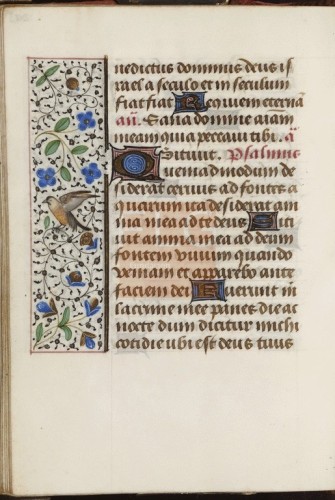 nedictus dominus deus is
rael a seculo et in seculum
fiat fiat Requiem eternā
añ. Sana domine aīam
meam quia peccavi tibi. a
Sitivit. Psalmus
Quemadmodum de
siderat cervus ad fontes a
quarum ita desiderat am
ma mea ad te deus Siti
vit anima mea ad deum
fontem vivum quando
veniam et apparebo ante
faciem dei Fuerunt m
lacrime mee panes die ac
nocte dum dicitur michi
cotidie ubi est deus tuus